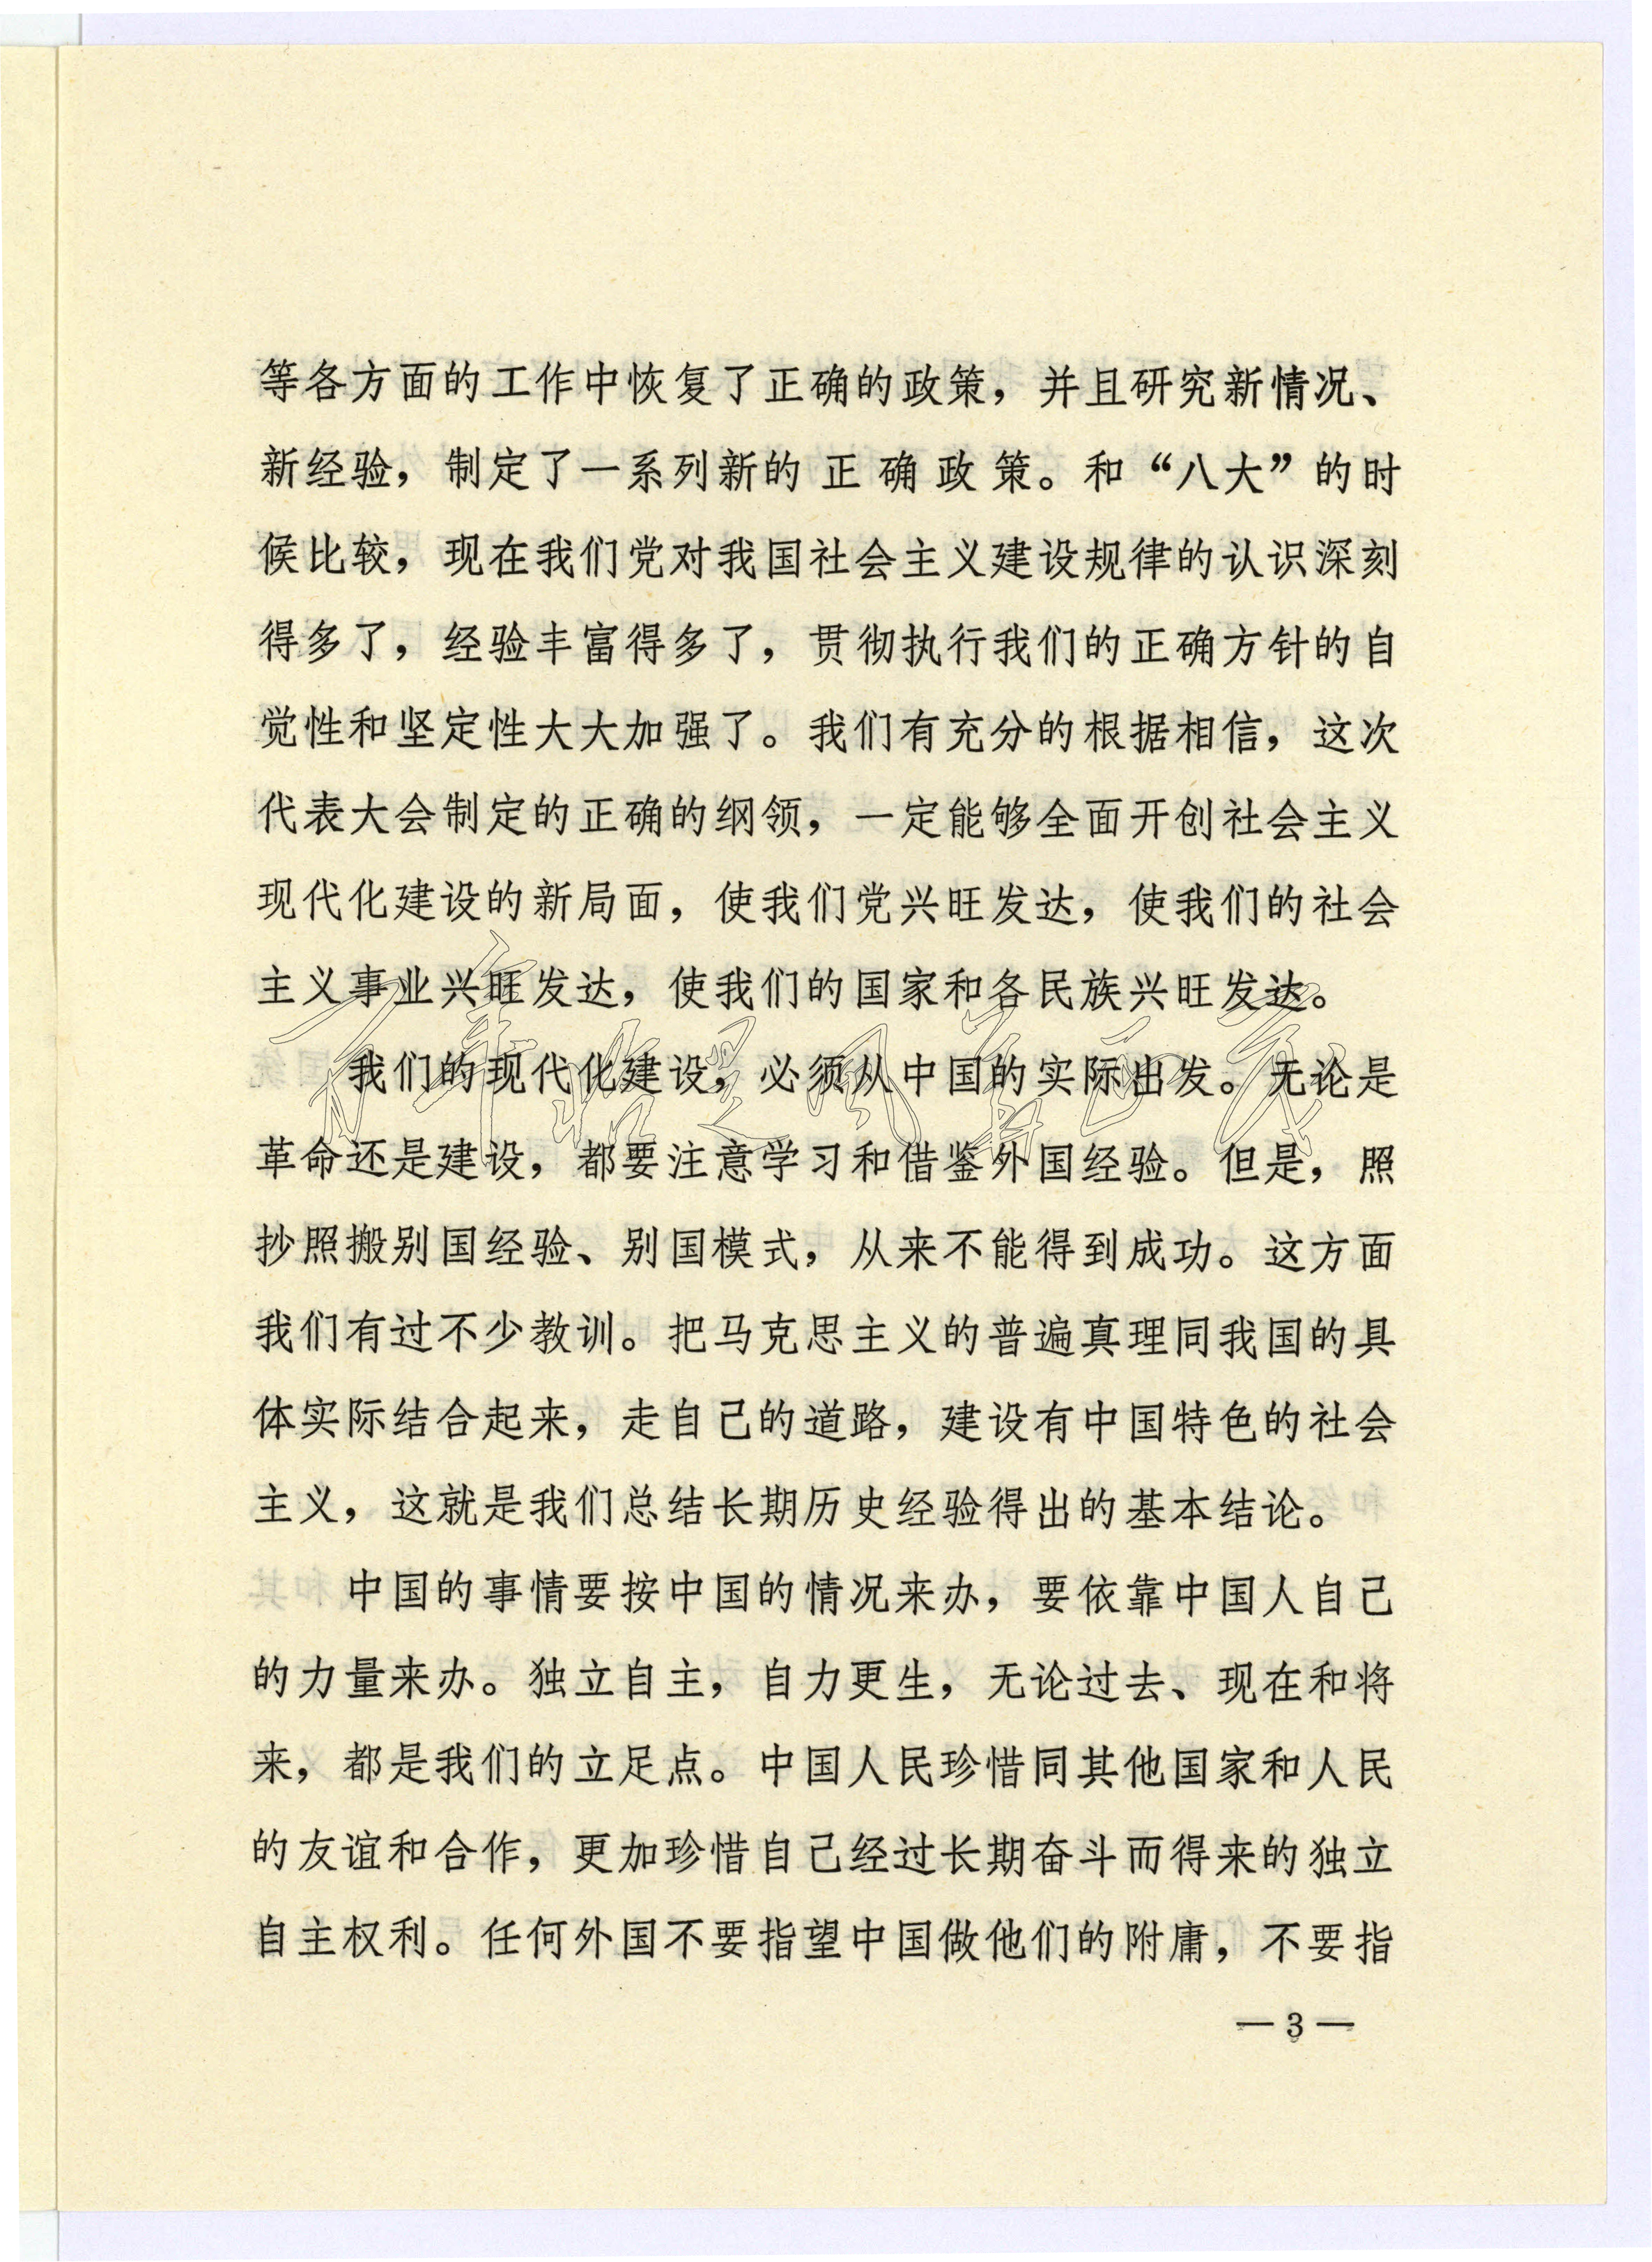 等各方面的工作中恢复了正确的政策，并且研究新情况、
新经验，制定了一系列新的正确政策。和“八大”的时
候比较，现在我们党对我国社会主义建设规律的认识深刻
得多了，经验丰富得多了，贯彻执行我们的正确方针的自
觉性和坚定性大大加强了。我们有充分的根据相信，这次
代表大会制定的正确的纲领，一定能够全面开创社会主义
现代化建设的新局面，使我们党兴旺发达，使我们的社会
主义事业兴旺发达，使我们的国家和各民族兴旺发达。
我们的现代化建设，必须从中国的实际出发。无论是
革命还是建设，都要注意学习和借鉴外国经验。但是，照
抄照搬别国经验、别国模式，从来不能得到成功。这方面
我们有过不少教训。把马克思主义的普遍真理同我国的具
体实际结合起来，走自己的道路，建设有中国特色的社会
主义，这就是我们总结长期历史经验得出的基本结论。
中国的事情要按中国的情况来办，要依靠中国人自己
的力量来办。独立自主，自力更生，无论过去、现在和将
来，都是我们的立足点。中国人民珍惜同其他国家和人民
的友谊和合作，更加珍惜自己经过长期奋斗而得来的独立
自主权利。任何外国不要指望中国做他们的附庸，不要指
— 3 —